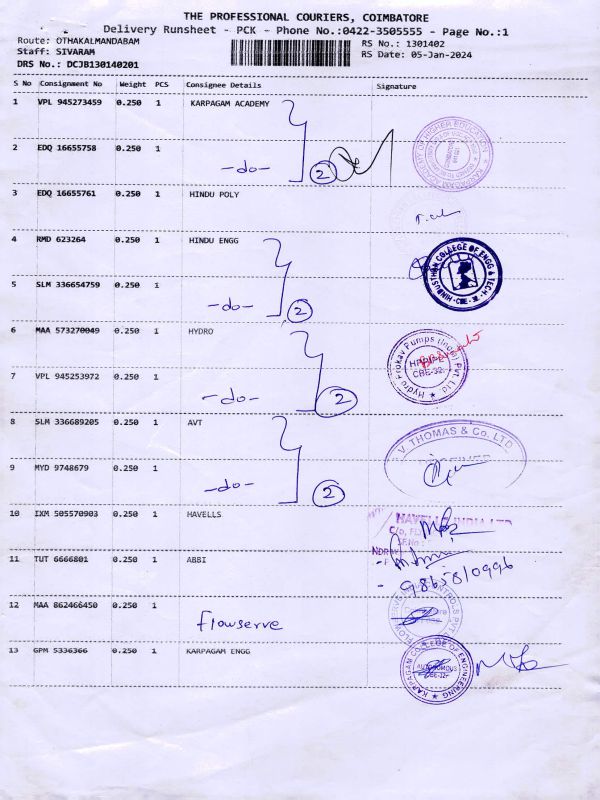 THE PROFESSIONAL COURIERS, COIMBATORE
Delivery Runsheet - PCK - Phone No.:0422-3505555 - Page No.:1
Route: OTHAKALMANDABAM RS No.: 1301402
Staff: SIVARAM RS Date: 05-Jan-2024
DRS No.: DCJB130140201
S No Consignment No Weight PCS Consignee Details Signature
1 VPL 945273459 0.250 1 KARPAGAM ACADEMY
2 EDQ 16655758 0.250 1
-do- 2
KARPAGAM ACADEMY OF HIGHER EDUCATION
3 EDQ 16655761 0.250 1 HINDU POLY
4 RMD 623264 0.250 1 HINDU ENGG
HINDUSTHAN COLLEGE OF ENGG & TECH
CBE - 32
5 SLM 336654759 0.250 1
-do- 2
6 MAA 573270049 0.250 1 HYDRO
Hydro Prokav Pumps (India) Pvt. Ltd
CBE-32
7 VPL 945253972 0.250 1
-do- 2
8 SLM 336689205 0.250 1 AVT
V. THOMAS & Co. LTD
9 MYD 9748679 0.250 1
-do- 2
10 IXM 505570903 0.250 1 HAVELLS
HAVELLS INDIA LTD
C/o,
11 TUT 6666801 0.250 1 ABBI
- 9865810996
12 MAA 862466450 0.250 1
flowserve
13 GPM 5336366 0.250 1 KARPAGAM ENGG
KARPAGAM COLLEGE OF ENGINEERING
AUTONOMOUS
CBE-32